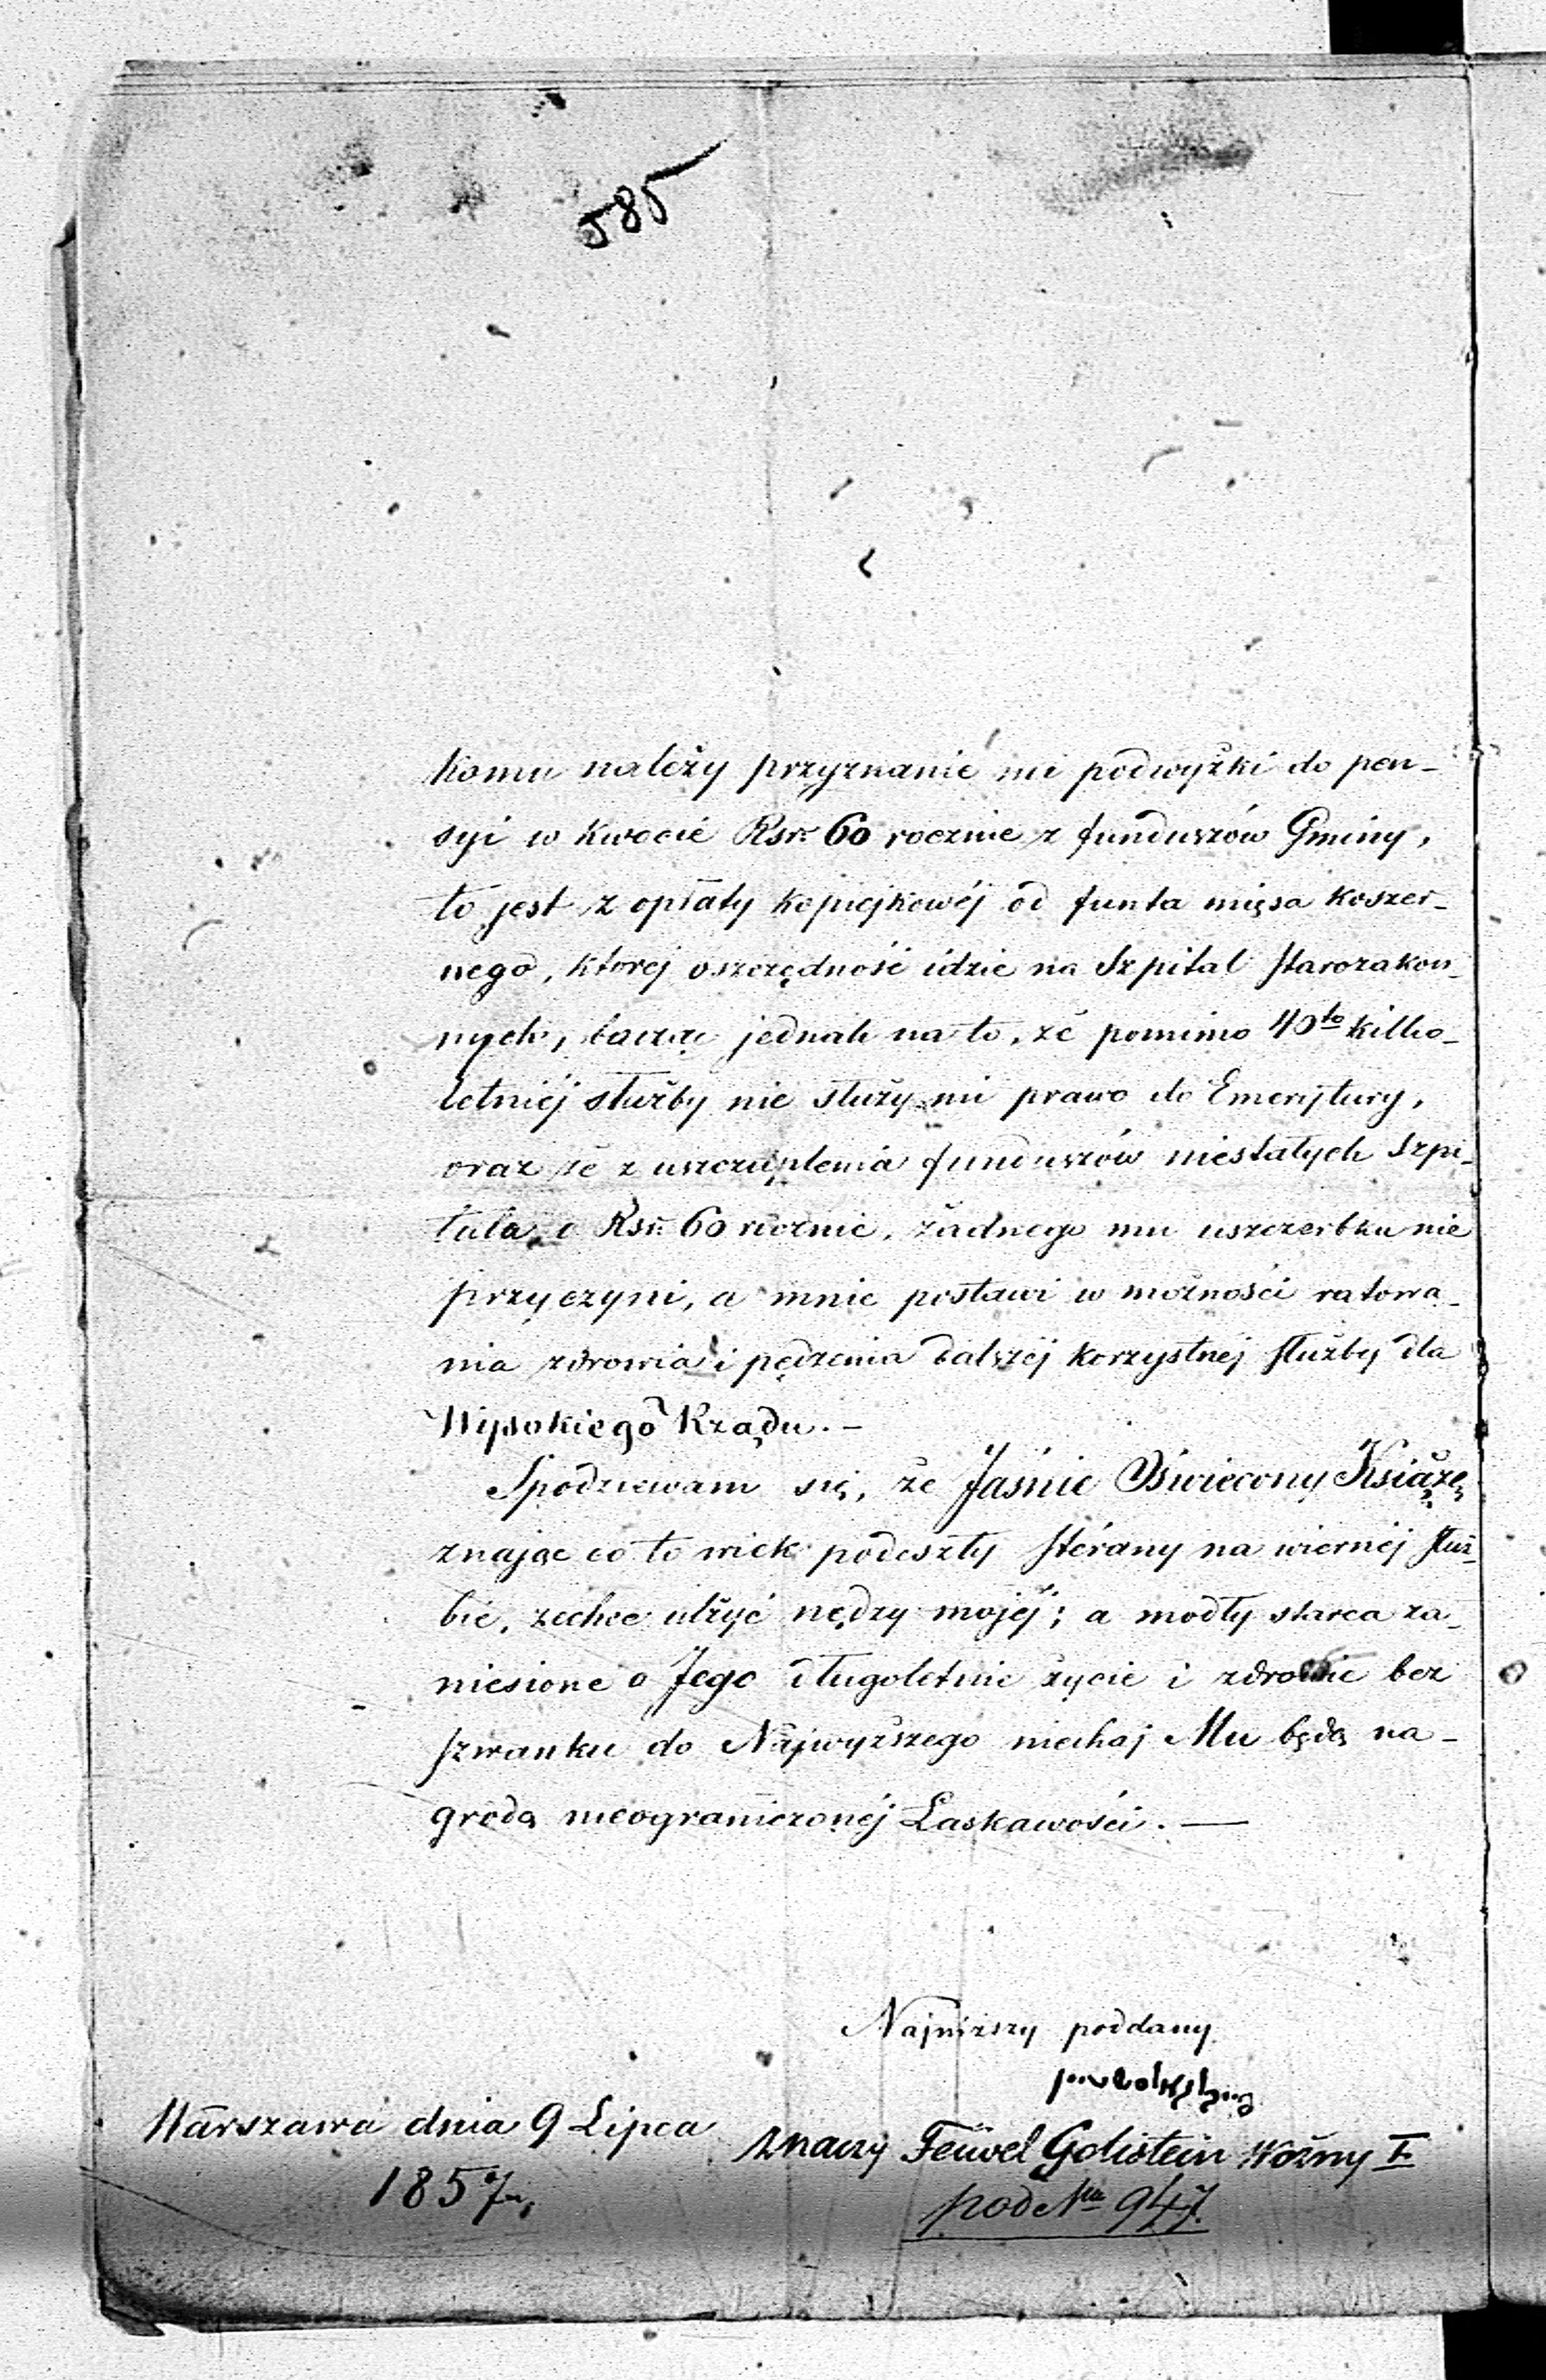 585
komu należy przyznanie mi podwyżki do pen-
syi w kwocie Rsr. 60 rocznie z funduszów Gminy,
to jest z opłaty kopiejkowéj od funta mięsa koszer-
nego, której oszczędność idzie na Szpital Starozakon-
nych, bacząc jednak na to, że pomimo 40to kilko-
letniéj służby nie służy mi prawo do Emerytury,
oraz że z uszczuplenia funduszów niestałych Szpi-
tala o Rsr. 60 rocznie, żadnego mu uszczerbku nie
przyczyni, a mnie postawi w możności ratowa-
nia zdrowia i pędzenia dalszéj korzystnéj służby dla
Wysokiego Rządu. —
Spodziewam się, że Jaśnie Oświecony Książę
znając co to wiek podeszły stérany na wiernéj służ-
bie, zechce ulżyć nędzy mojéj; a modły starca za-
niesione o Jego długoletnie życie i zdrowie bez
szwanku do Najwyższego niechaj Mu będą na-
grodą nieograniczonéj Łaskawości. —
Najniższy poddany
Warszawa dnia 9 Lipca
1857
znaczy Feiwel Golistein Woźny T.
pod No 947.